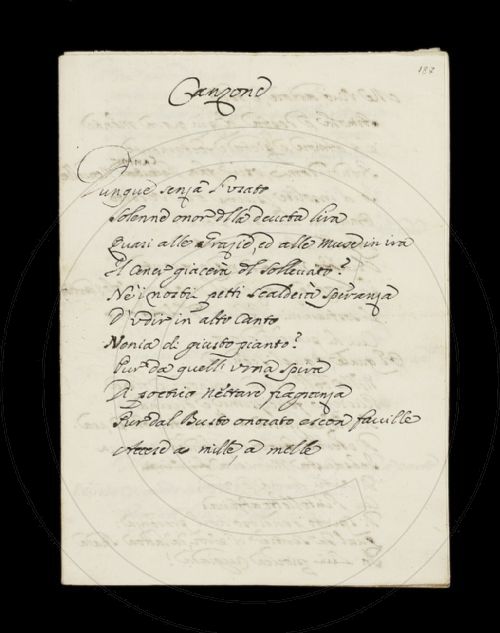 187
Canzone
Dunque senza l'usato
Solenne onor della devota lira
Quasi alle Grazie, ed alle Muse in ira
Il Cener giacerà del Sollevato?
Ne i nostri petti scalderà speranza
D'udir in alto Canto
Nenia di giusto pianto?
Pur da quell' urna spira
Di poetico néttare fragranza
Pur dal Busto onorato escon faville
Accese a mille, a mille